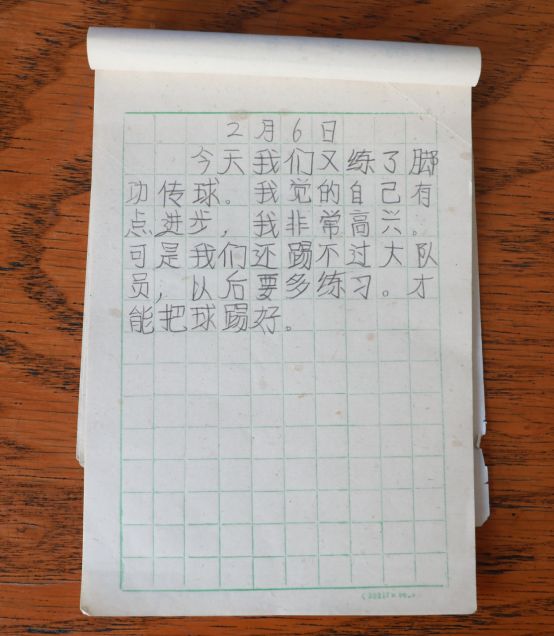 2月6日
今天我们又练了脚
功传球。我觉的自己有
点进步，我非常高兴。
可是我们还踢不过大队
员，以后要多练习。才
能把球踢好。